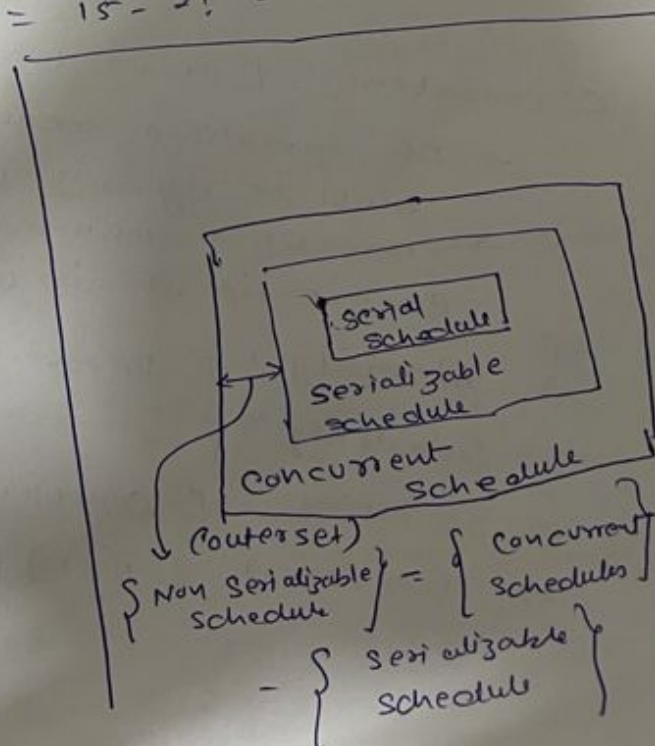 = 15 - 2!
serial
schedule
serializable
schedule
concurrent
schedule
(outer set)
{ Non Serializable
schedule } = { concurrent
schedules }
- { serializable
schedule }